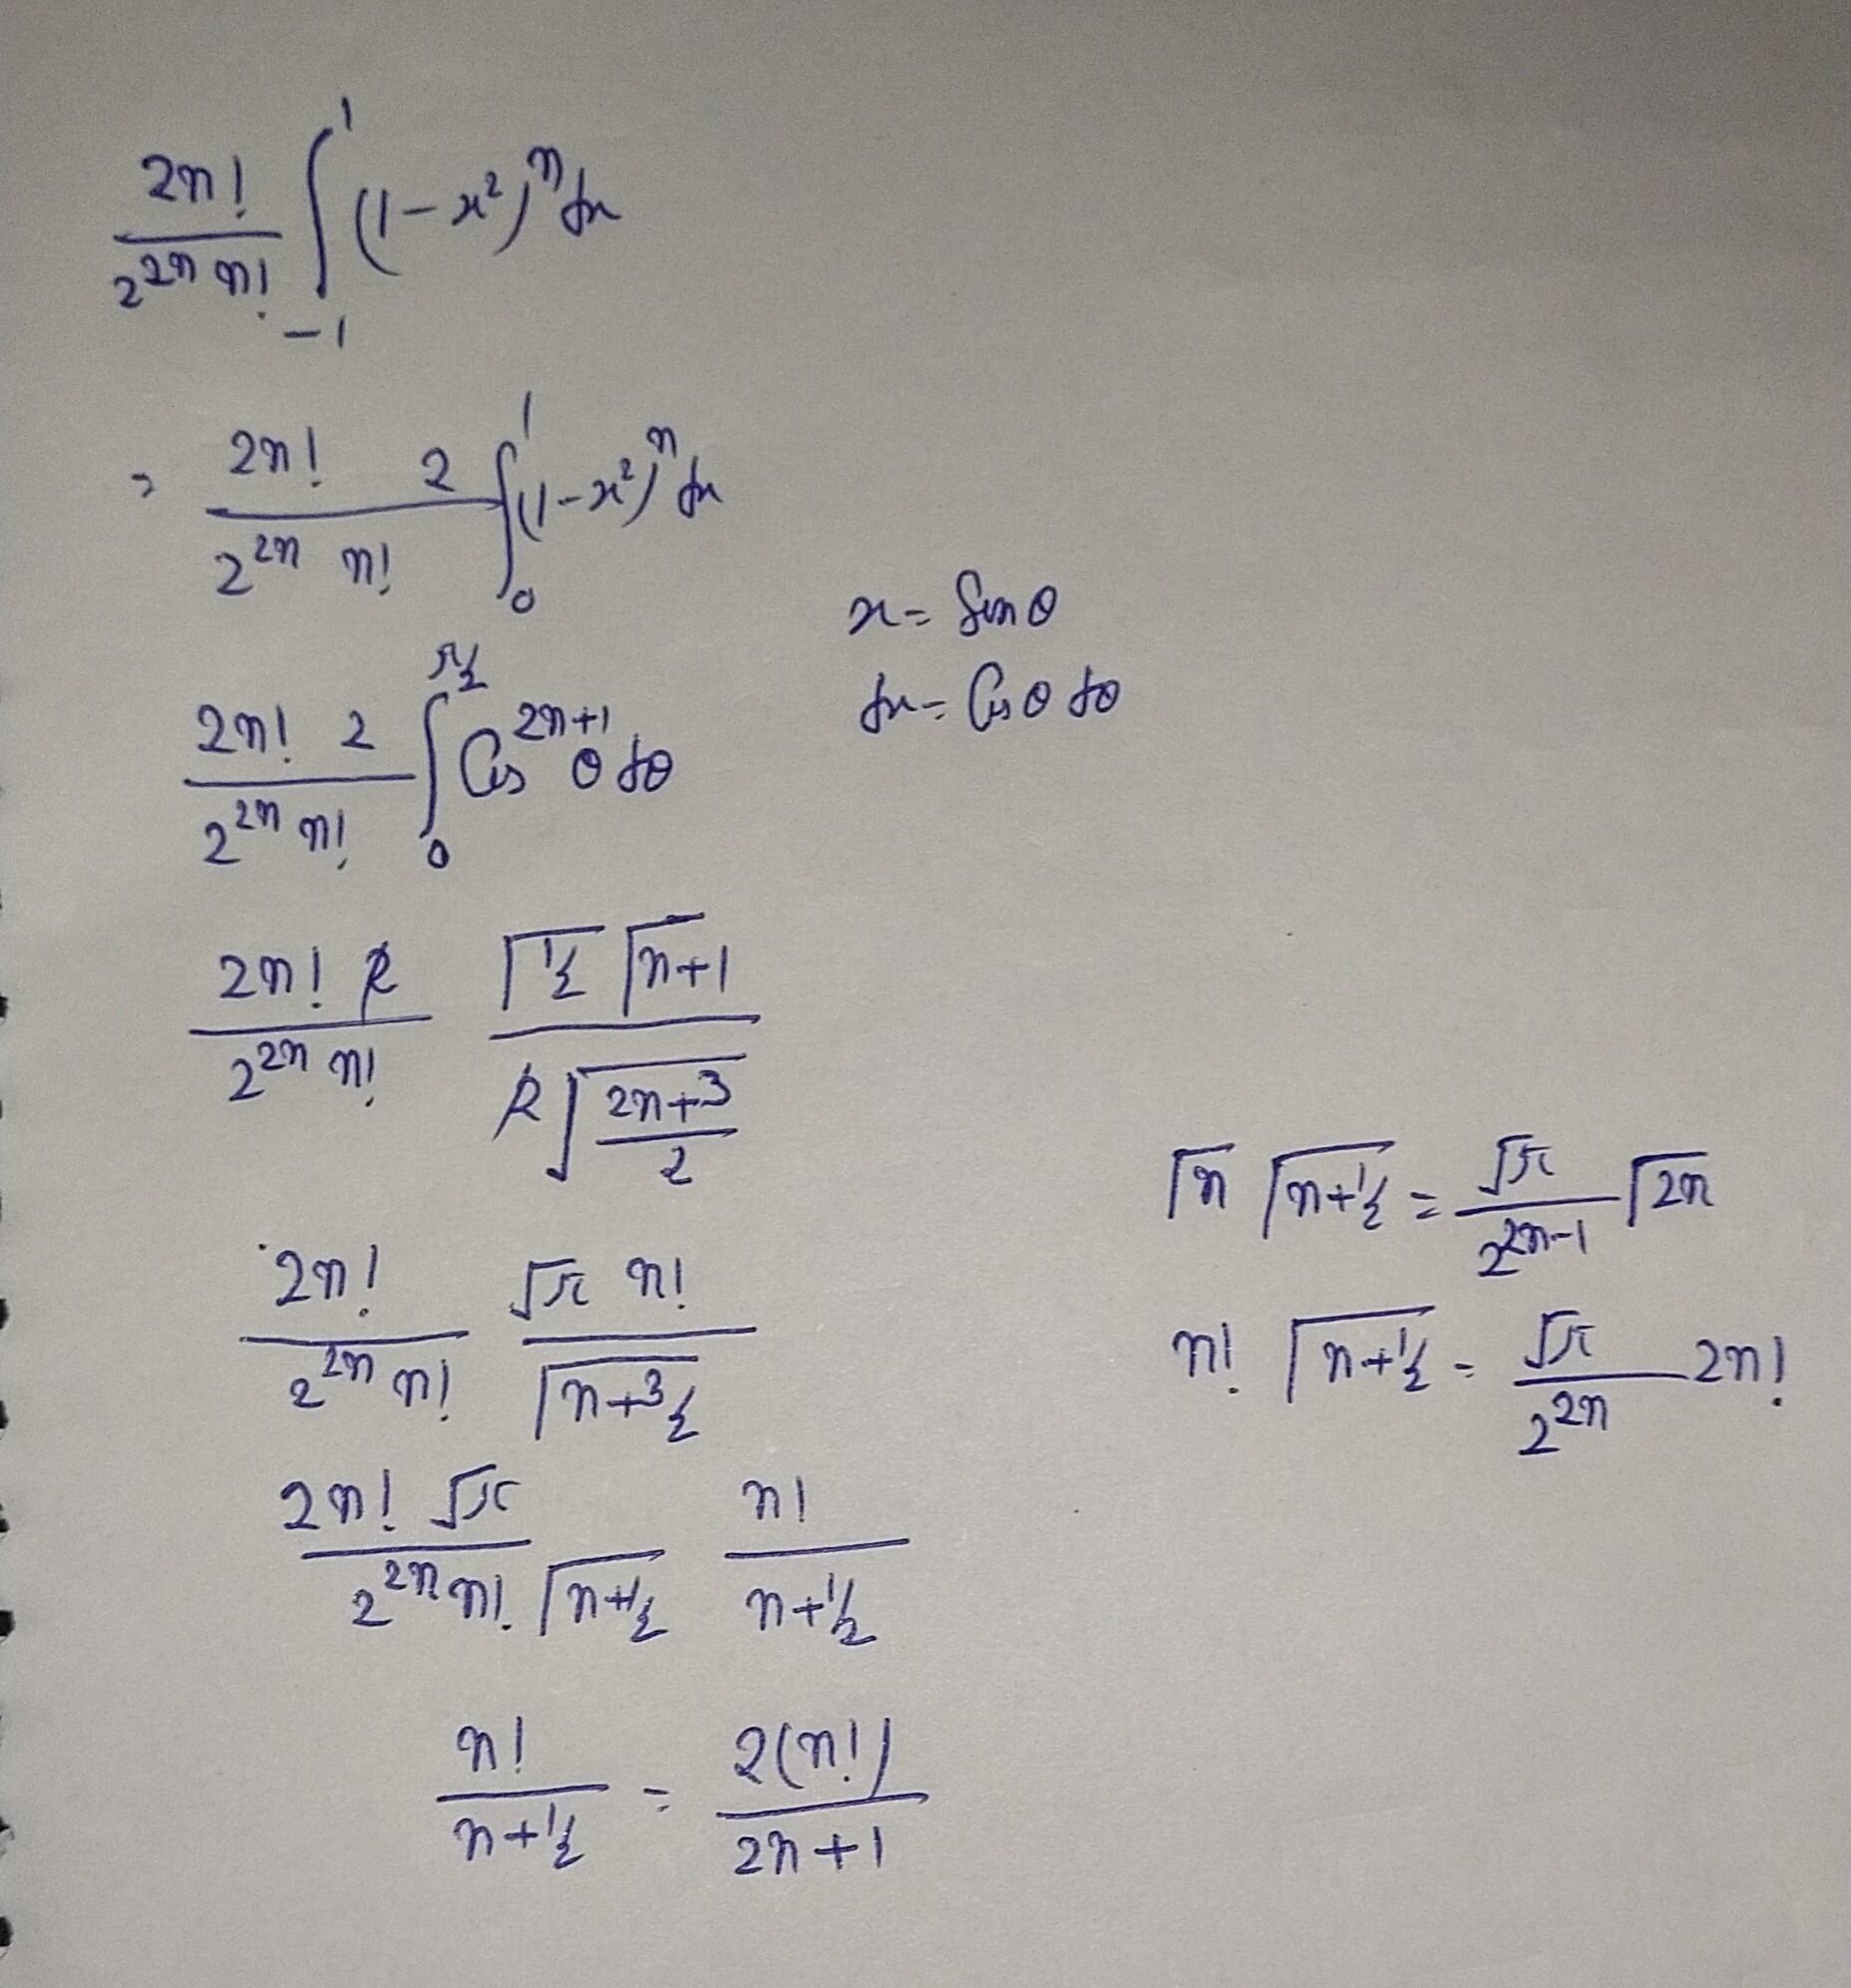 2n! / 2^{2n} n! ∫_{-1}^{1} (1-x²)^n dx
= 2n! 2 / 2^{2n} n! ∫_0^1 (1-x²)^n dx
x = Sinθ
dx = Cosθ dθ
2n! 2 / 2^{2n} n! ∫_0^{π/2} Cos^{2n+1} θ dθ
2n! 2 / 2^{2n} n! Γ1/2 Γn+1 / 2 Γ(2n+3 / 2)
Γn Γn+1/2 = √π / 2^{2n-1} Γ2n
2n! / 2^{2n} n! √π n! / Γn+3/2
n! Γn+1/2 = √π / 2^{2n} 2n!
2n! √π / 2^{2n} n! Γn+1/2 n! / n+1/2
n! / n+1/2 = 2(n!) / 2n+1